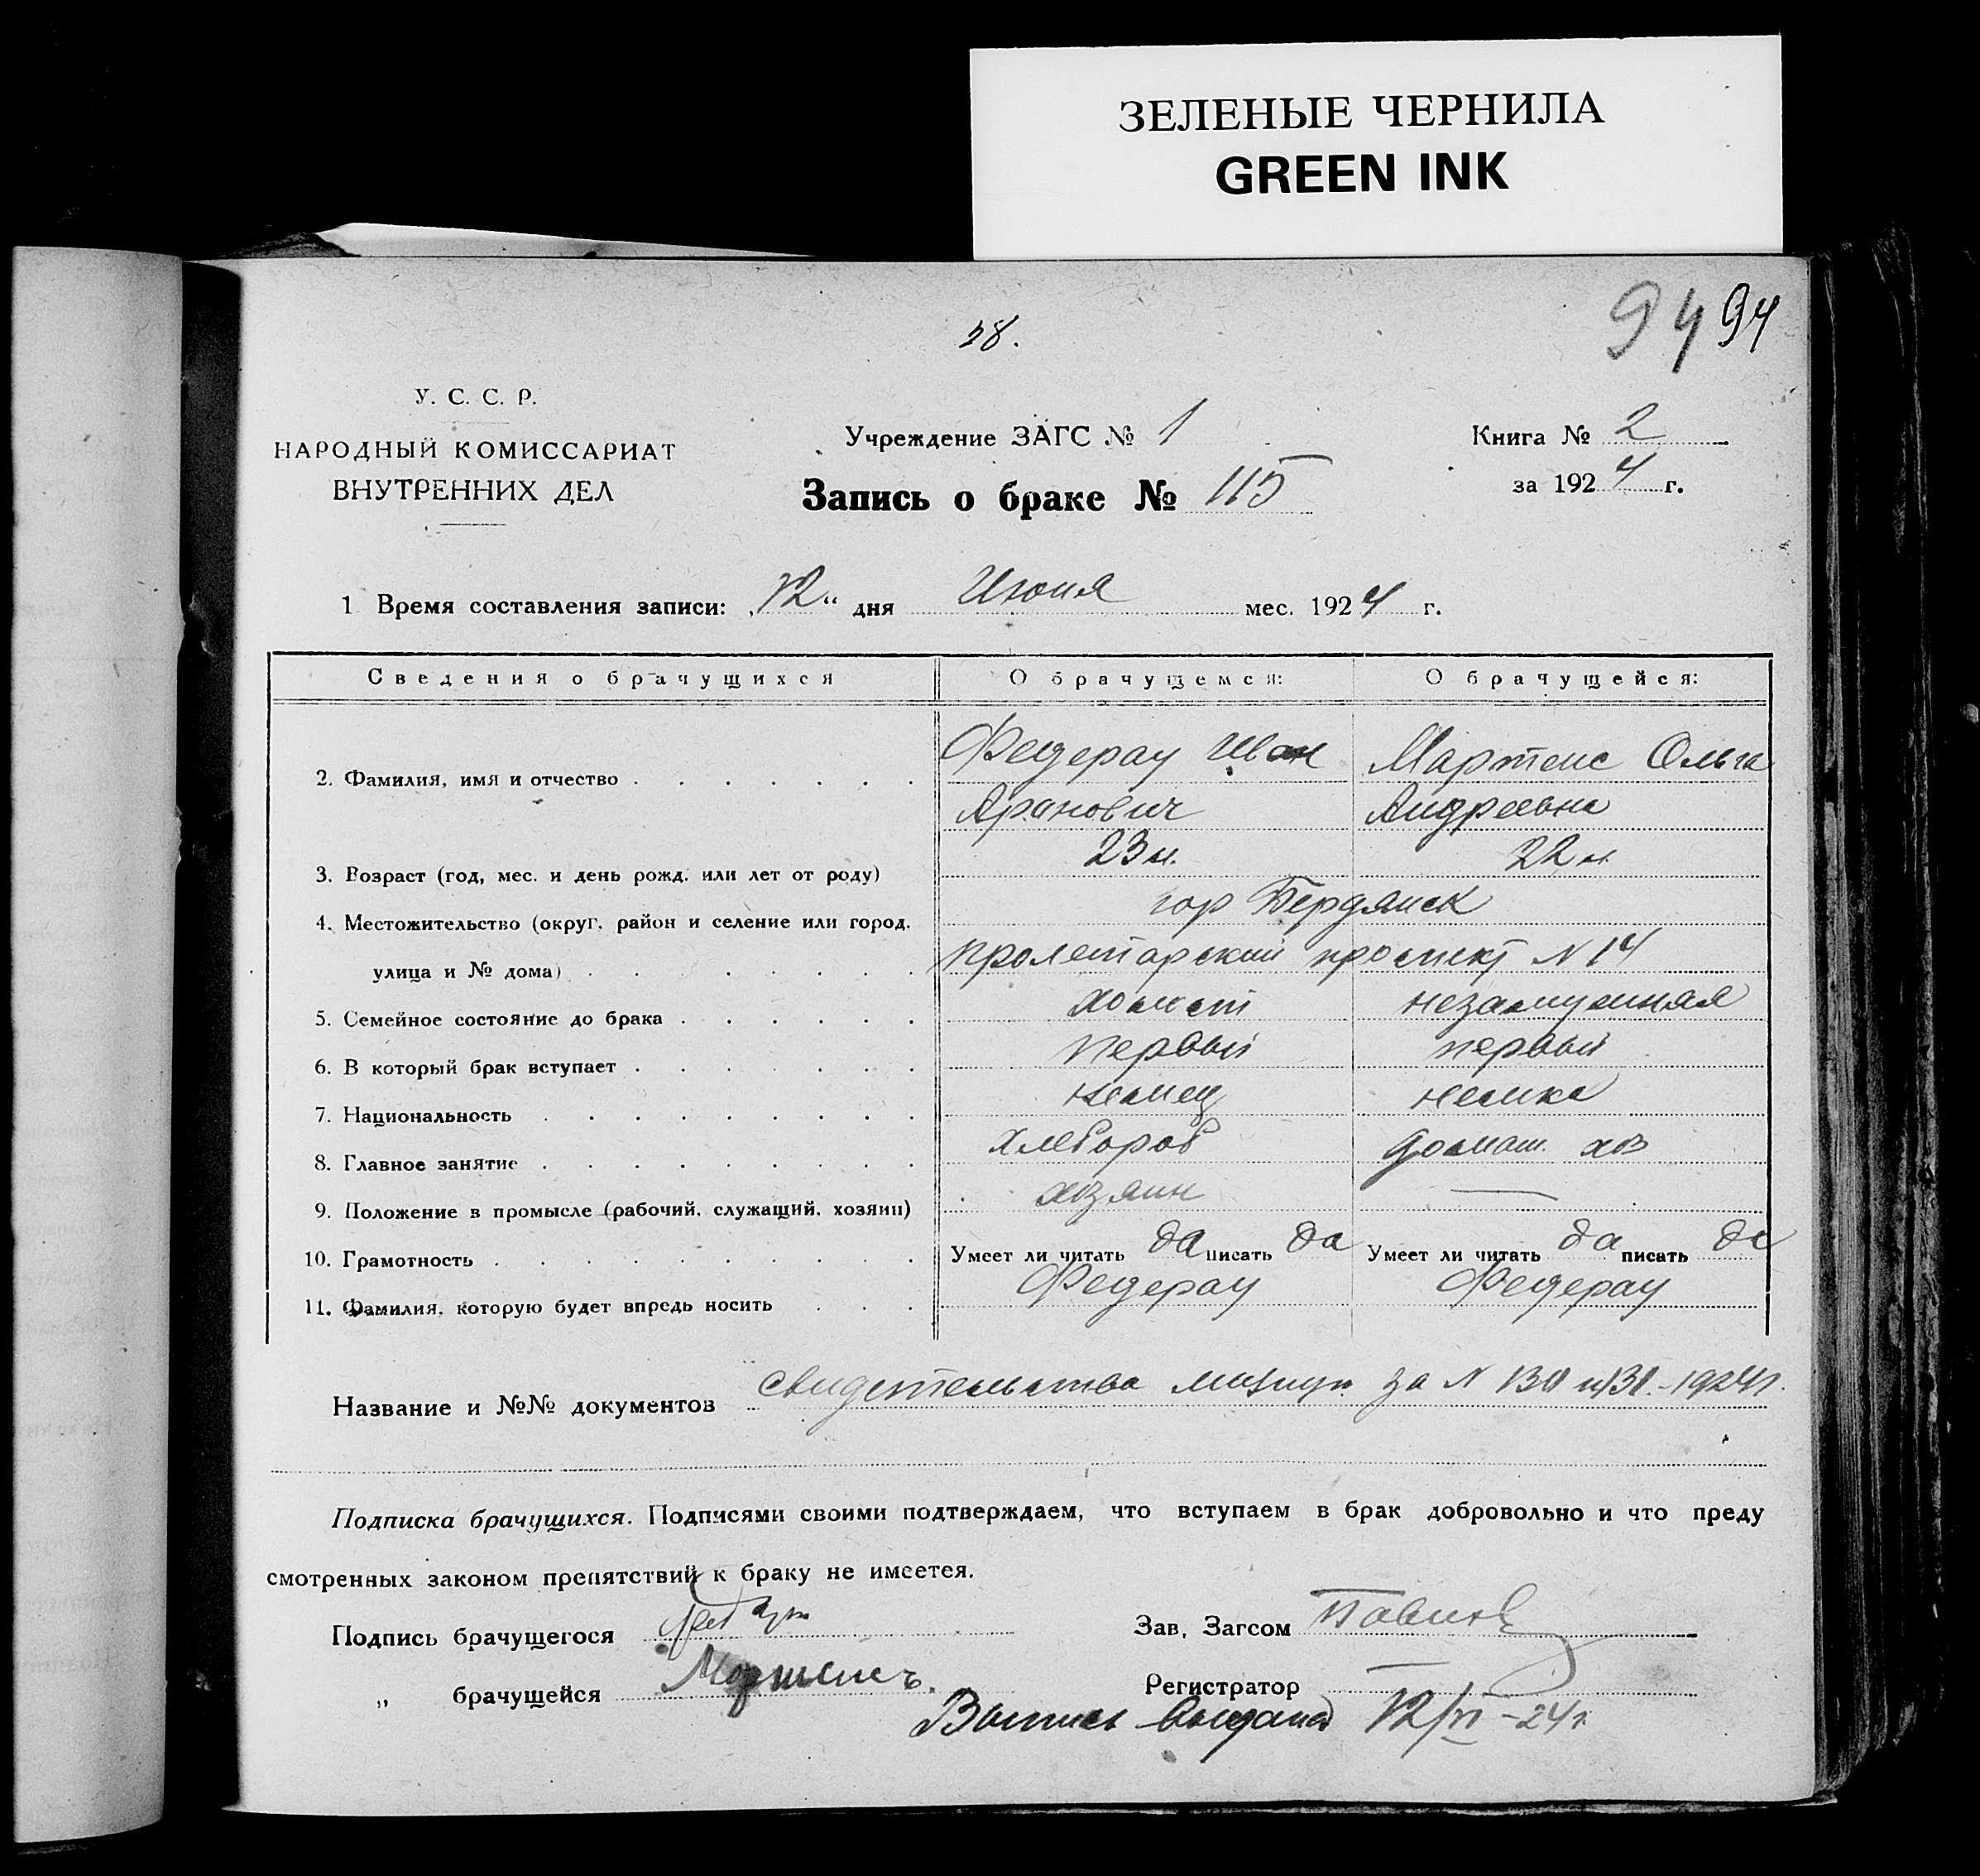 ЗЕЛЕНЫЕ ЧЕРНИЛА
GREEN INK
94 94
У. С. С. Р.
НАРОДНЫЙ КОМИССАРИАТ
ВНУТРЕННИХ ДЕЛ
Учреждение ЗАГС № 1
Книга № 2
Запись о браке № 115
за 1924 г.
1 Время составления записи: „12“ дня Июня мес. 1924 г.
Сведения о брачущихся О брачущемся: О брачущейся:
2. Фамилия, имя и отчество Федерау Иван Мартенс Ольга
Аранович Андреевна
3. Возраст (год, мес. и день рожд. или лет от роду) 23 л. 22 л.
4. Местожительство (округ, район и селение или город, гор Бердянск
улица и № дома) Пролетарский проспект N 14
5. Семейное состояние до брака холост незамужняя
6. В который брак вступает первый первый
7. Национальность немец немка
8. Главное занятие хлебороб домаш. хоз
9. Положение в промысле (рабочий, служащий, хозяин) хозяин —
10. Грамотность Умеет ли читать да писать да Умеет ли читать да писать да
11. Фамилия, которую будет впредь носить Федерау Федерау
Название и №№ документов свидетельства за N 130 и 131 - 1924 г.
Подписка брачущихся. Подписями своими подтверждаем, что вступаем в брак добровольно и что преду
смотренных законом препятствий к браку не имеется.
Подпись брачущегося Зав. Загсом
„ брачущейся Мартенсъ. Регистратор
Выпись выдана 12/VI - 24 г.